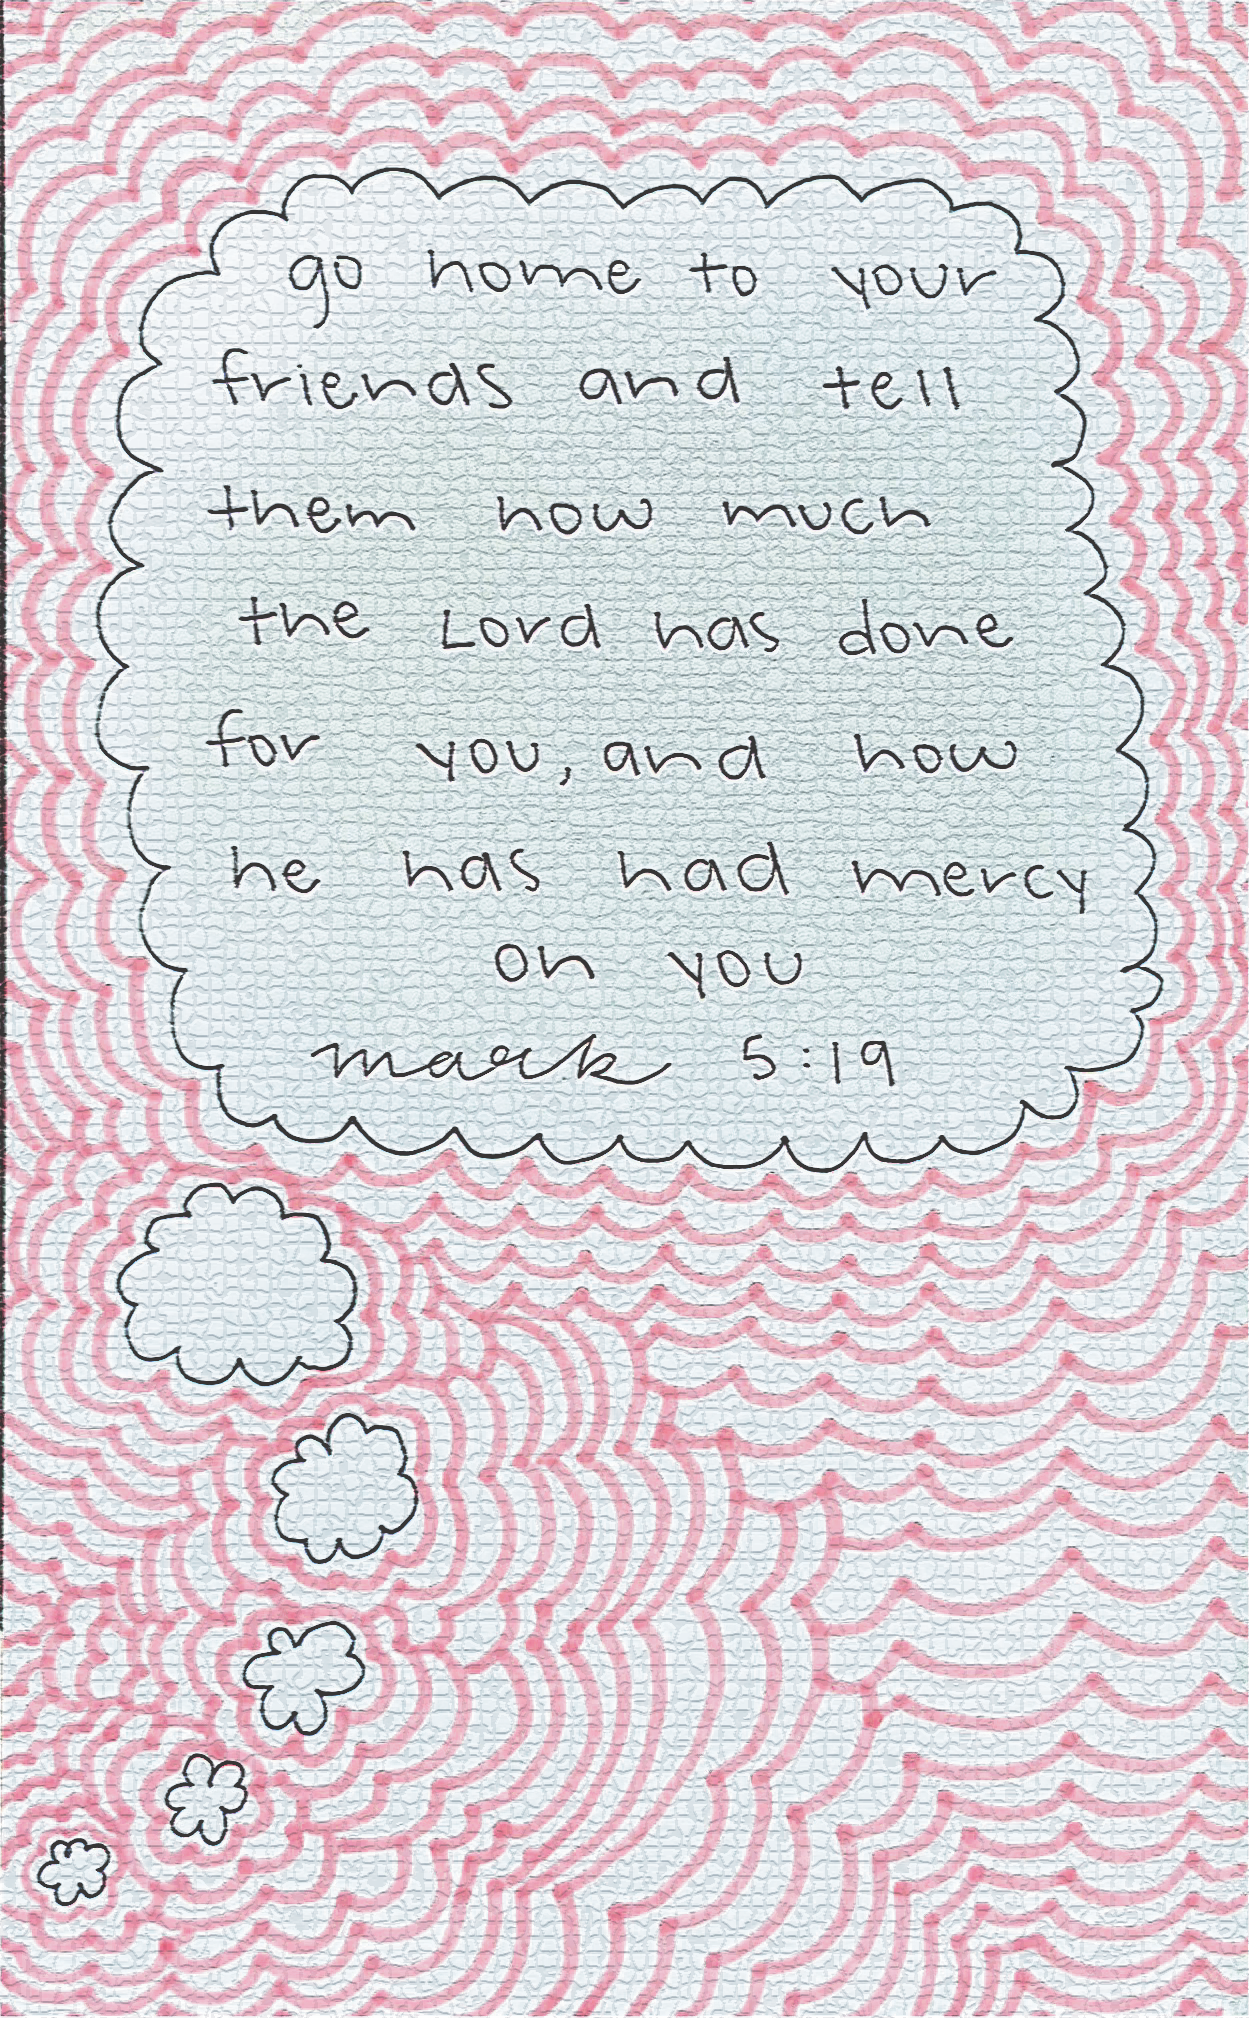 go home to your
friends and tell
them how much
the Lord has done
for you, and how
he has had mercy
on you
mark 5:19